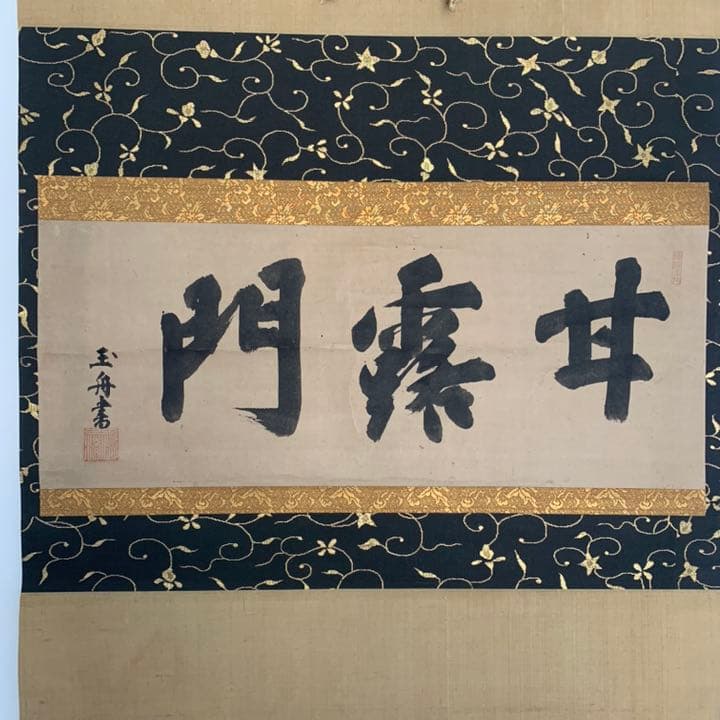 甘露門
玉舟書